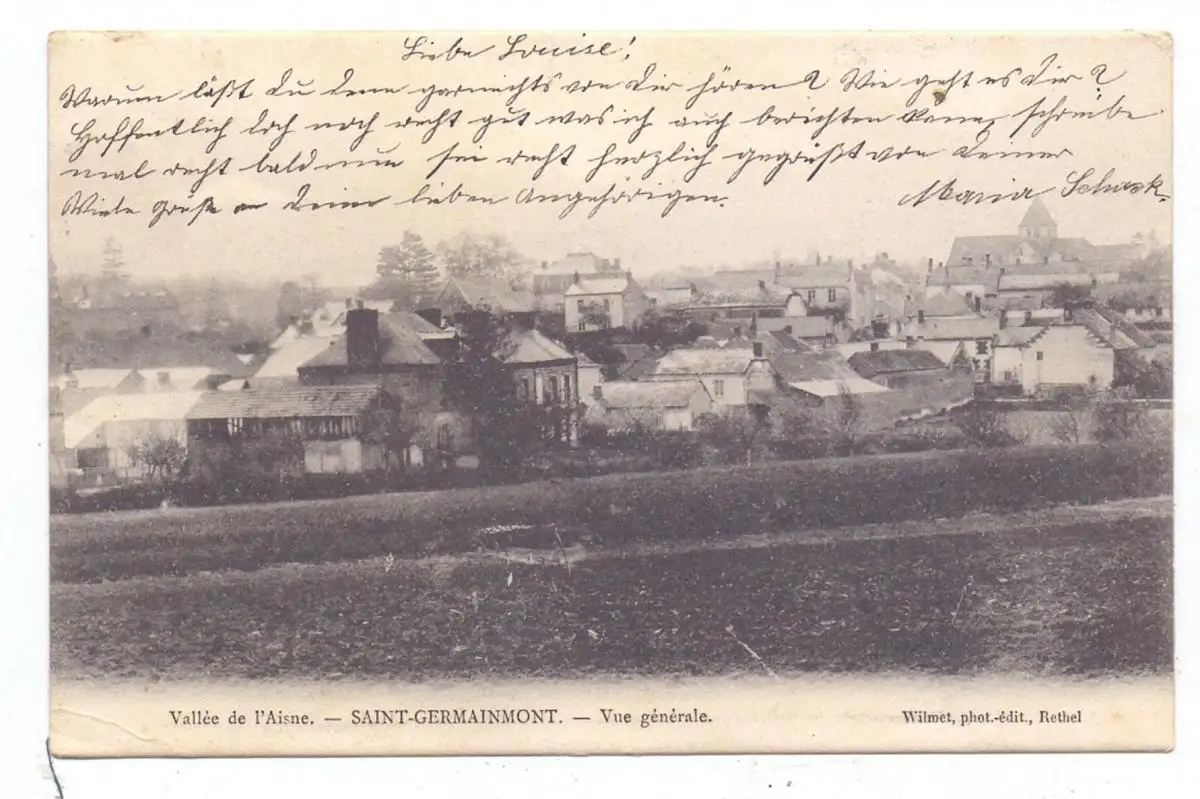 Liebe Louise!
Warum läßt Du denn garnichts von Dir hören? Wie geht es Dir?
Hoffentlich doch noch recht gut was ich auch berichten kann, schreibe
mal recht bald nun sei recht herzlich gegrüßt von Deiner
Viele Grüße an Deine lieben Angehörigen. Maria
Vallée de l'Aisne. — SAINT-GERMAINMONT. — Vue générale. Wilmet, phot.-édit., Rethel